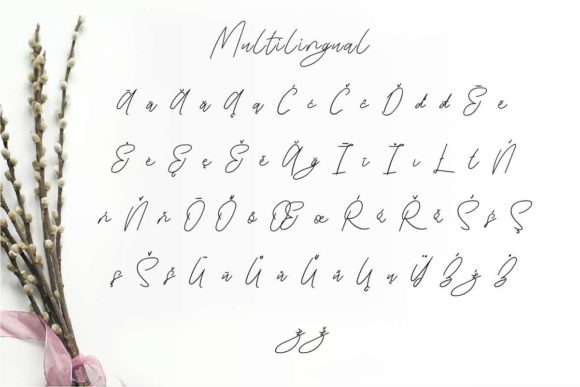 Multilingual
Ā ā Ă ă Ą ą Ć ć Č č Ď ď đ Ē ē
Ė ė Ę ę Ě ě Ğ ğ Ī ī İ ı Ł ł Ń
ń Ň ň Ō Ő ő Œ œ Ŕ ŕ Ř ř Ś ś Ş
ş Š š Ū ū Ů ů Ű ű Ų ų Ÿ Ź ź Ż
ż ž